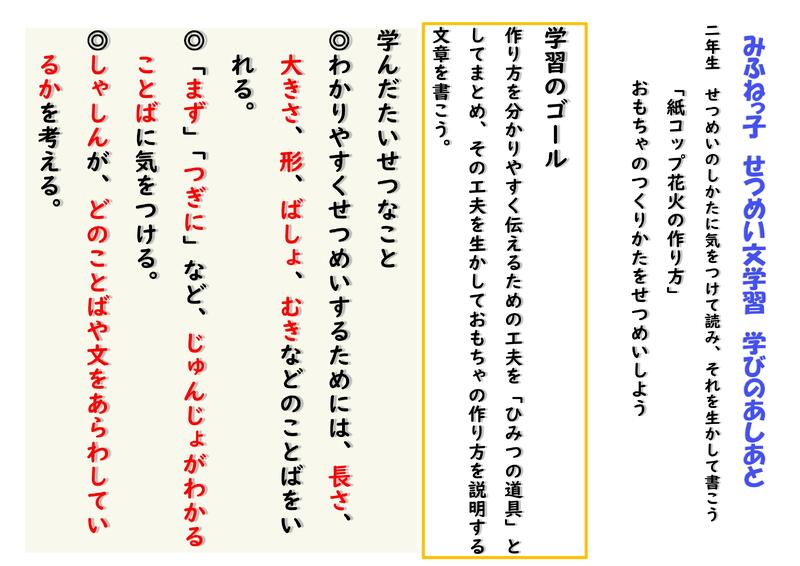 みふねっ子　せつめい文学習　学びのあしあと
二年生　せつめいのしかたに気をつけて読み、それを生かして書こう
「紙コップ花火の作り方」
おもちゃのつくりかたをせつめいしよう
学習のゴール
作り方を分かりやすく伝えるための工夫を「ひみつの道具」と
してまとめ、その工夫を生かしておもちゃの作り方を説明する
文章を書こう。
学んだたいせつなこと
◎わかりやすくせつめいするためには、長さ、
大きさ、形、ばしょ、むきなどのことばをい
れる。
◎「まず」「つぎに」など、じゅんじょがわかる
ことばに気をつける。
◎しゃしんが、どのことばや文をあらわしてい
るかを考える。